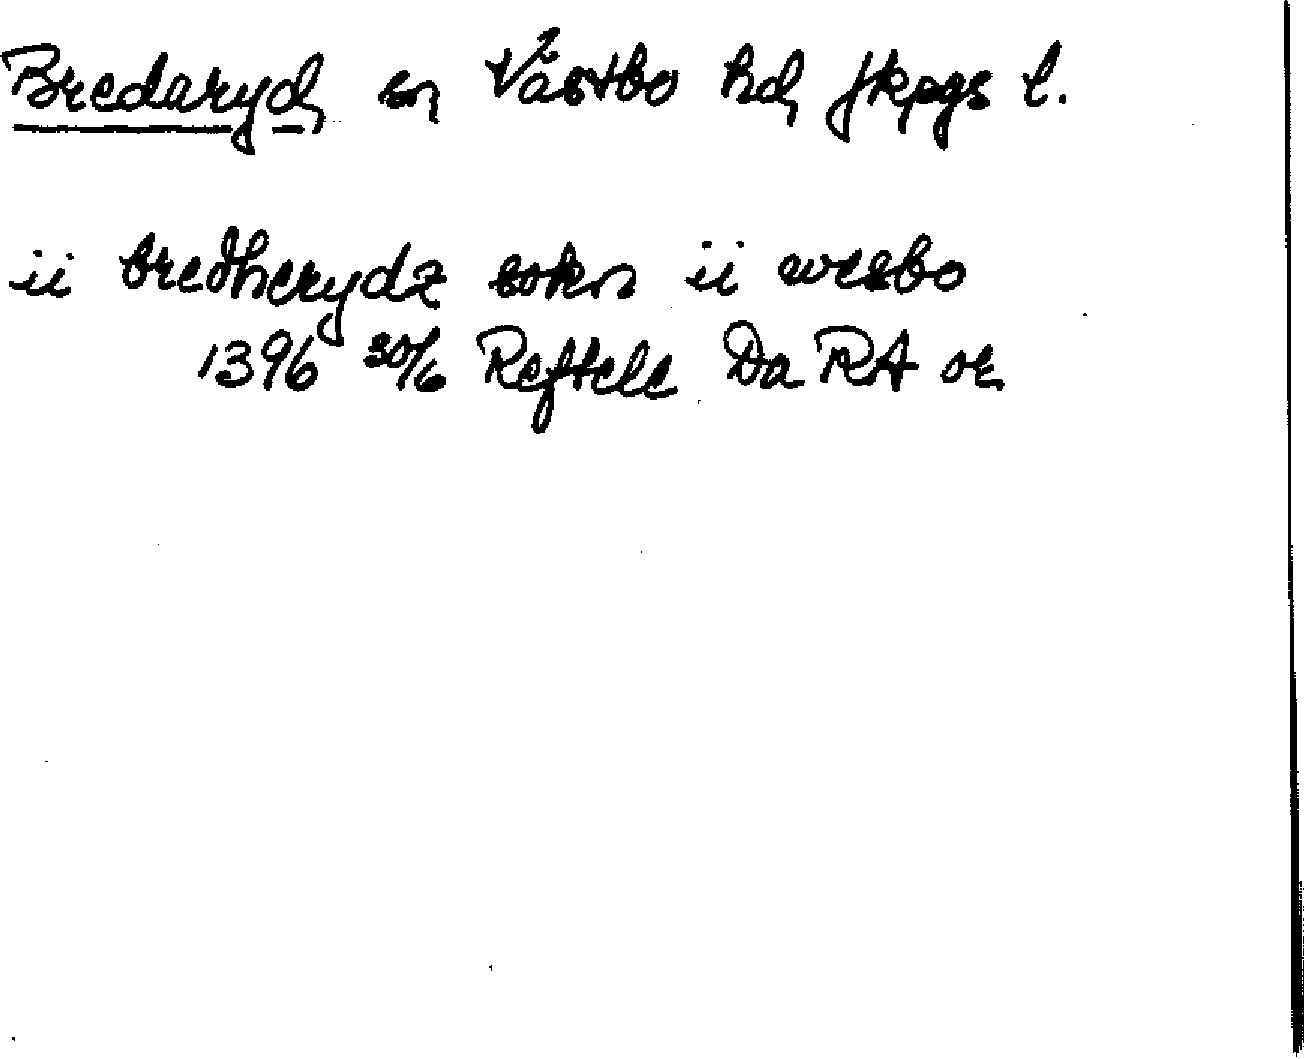 Bredaryd sn Västbo hd Jkpgs l.
ii bredherydz sokn ii wesbo
1396 30/6 Reftele Da RA or